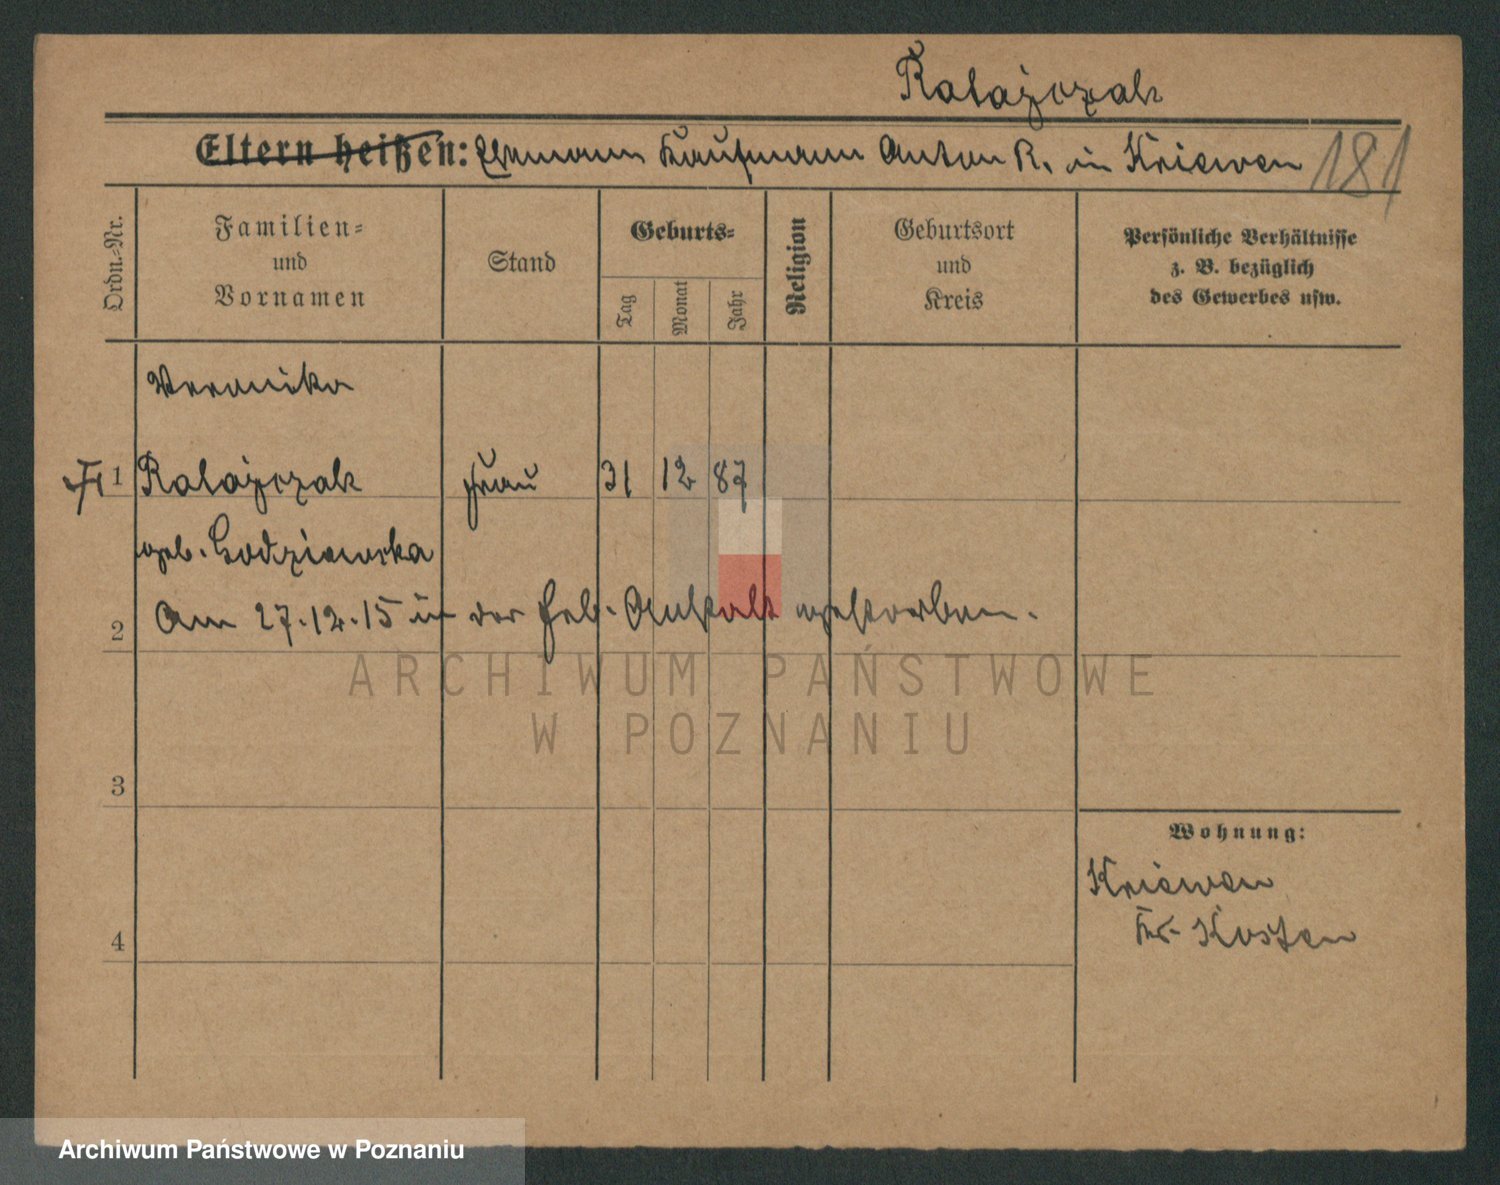 Ratajczak
Eltern heißen: Ehemann Kaufmann Anton R. in Kriewen 181
Ordn.-Nr.
Familien-
und
Vornamen
Stand
Geburts-
Tag
Monat
Jahr
Religion
Geburtsort
und
Kreis
Persönliche Verhältnisse
z. B. bezüglich
des Gewerbes usw.
Veronika
1 Ratajczak Frau 31 12 87
geb. Godziewska
2 Am 27.12.15 in der Heb. Anstalt gestorben.
ARCHIWUM PAŃSTWOWE
W POZNANIU
3
Wohnung:
Kriewen
4 Kr. Kosten
Archiwum Państwowe w Poznaniu